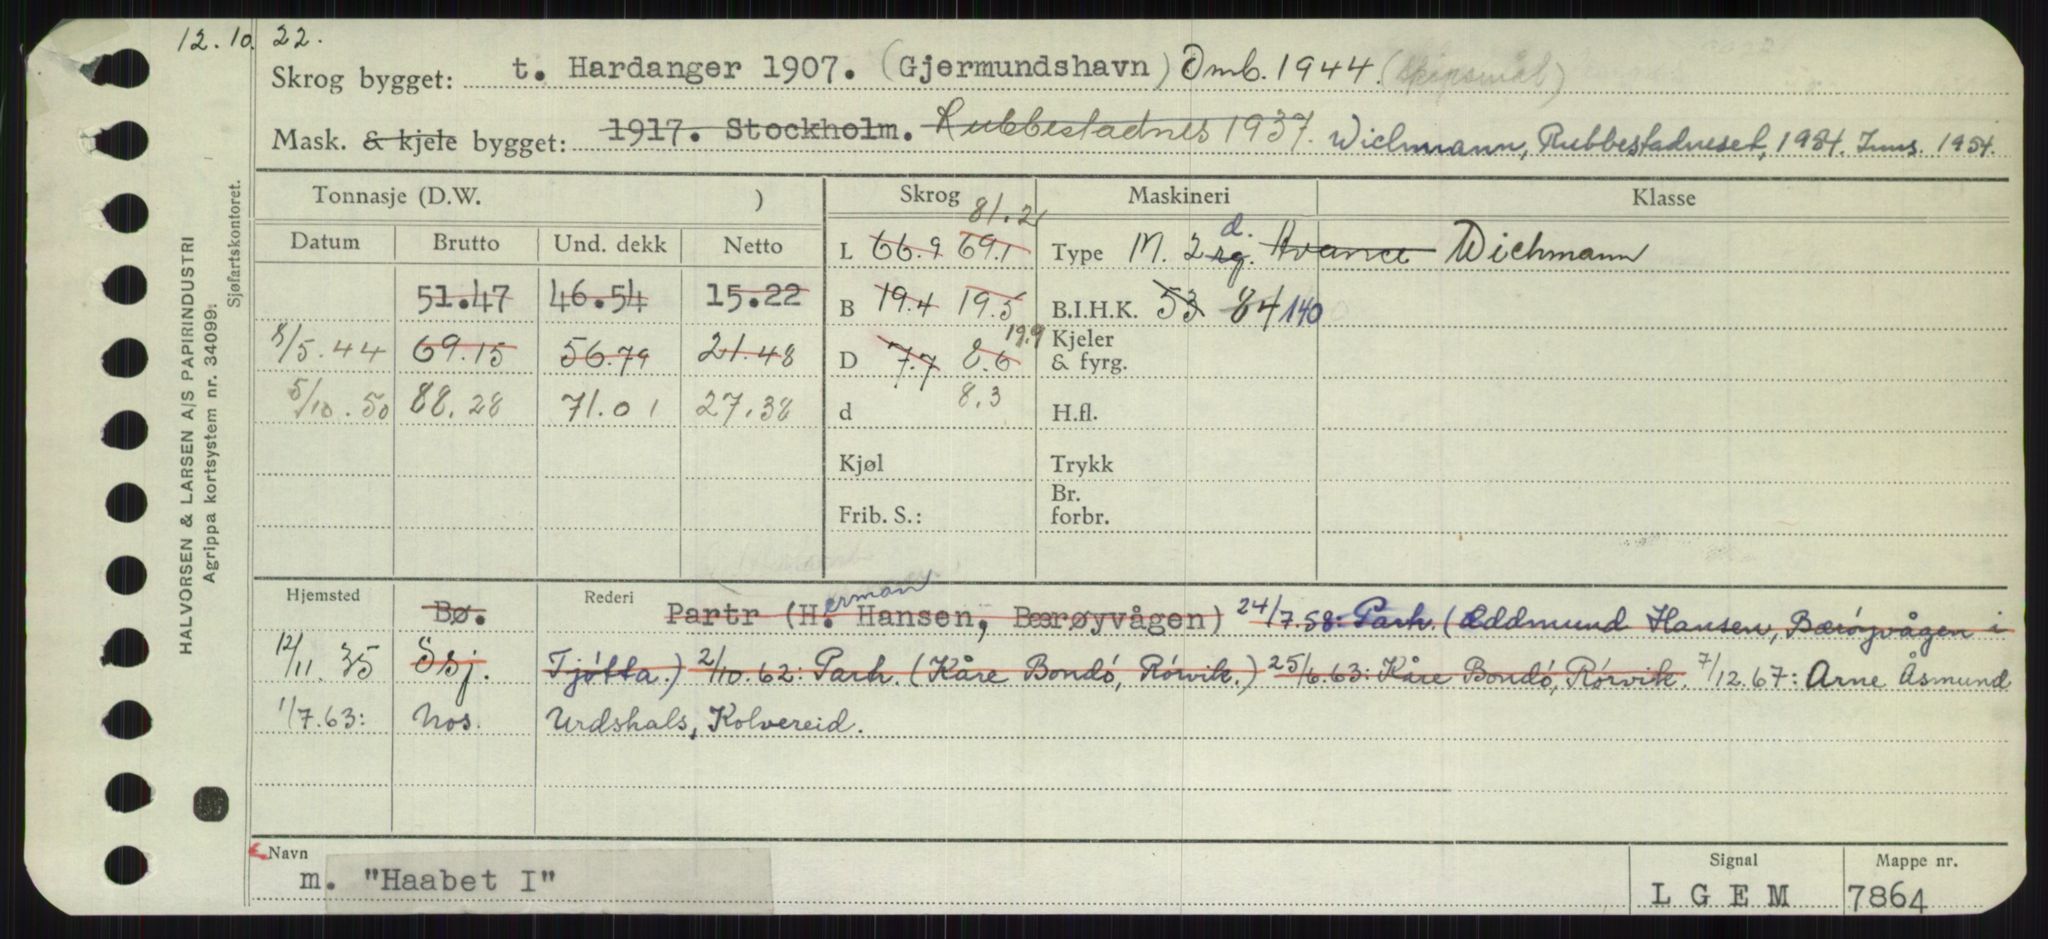 12.10. 22.
Skrog bygget: t. Hardanger 1907. (Gjermundshavn) Omb. 1944.
Mask. & kjele bygget: 1917. Stockholm. Rubbestadnes 1937. Wichmann, Rubbestadneset, 1954. Inns. 1954.
HALVORSEN & LARSEN A/S PAPIRINDUSTRI
Agrippa kortsystem nr. 34099.
Sjøfartskontoret.
Tonnasje (D.W. ) Skrog Maskineri Klasse
Datum Brutto Und. dekk Netto
81.2
L 66.9 69.1 Type M. 2 rg. d. Avance Wichmann
51.47 46.54 15.22 B 19.4 19.5 B.I.H.K. 53 84 140
19.9
8/5.44 69.15 56.79 21.48 D 7.7 8.6 Kjeler & fyrg.
5/10.50 88.28 71.01 27.38 d 8.3 H.fl.
Kjøl Trykk
Frib. S.: Br. forbr.
Hjemsted Rederi
Bø. Partr (H.erman Hansen, Bærøyvågen) 24/7.58: Partr. (Oddmund Hansen, Bærøyvågen i
12/11.35 Ösj. Tjøtta.) 2/10.62: Partr. (Kåre Bondö, Rörvik.) 25/6.63: Kåre Bondö, Rörvik. 7/12.67: Arne Åsmund
1/7.63: Nos. Urdshals, Kolvereid.
Navn Signal Mappe nr.
m. "Haabet I" LGEM 7864